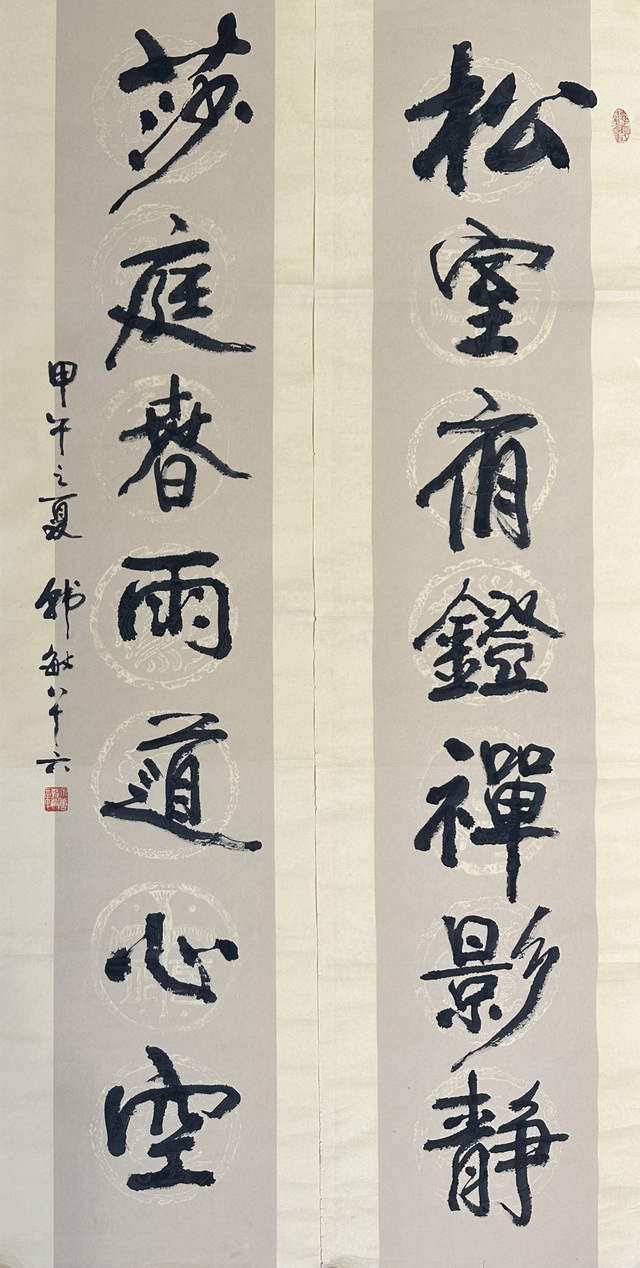 松室夜鐙禪影靜
莎庭春雨道心空
甲午之夏 韩敏八十六